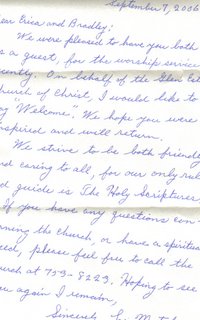 September 7, 2006
ear Erica and Bradley:
We were pleased to have you both
s a guest, for the worship service
cently. On behalf of the Glen Est
hurch of Christ, I would like to
ay "Welcome". We hope you were
nspired and will return.
We strive to be both friendly
nd caring to all, for our only rul
d guide is The Holy Scriptures
If you have any questions con-
rning the church, or have a spiritua
eed, please feel free to call the
urch at 753-8223. Hoping to see
ou again I remain,
Sincerely,